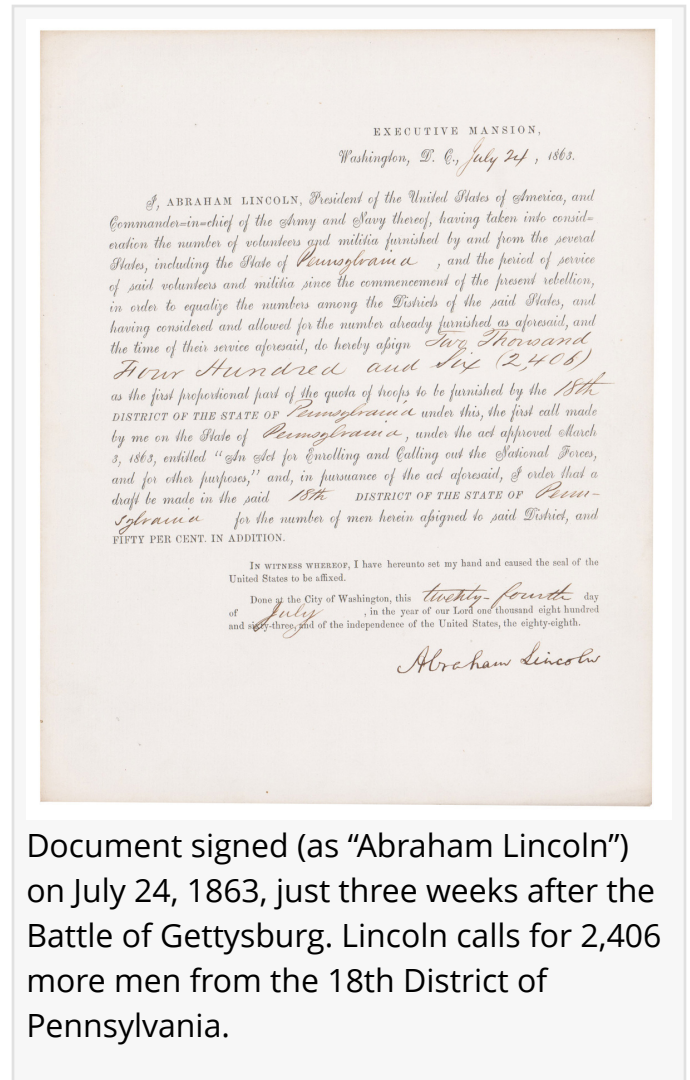 EXECUTIVE MANSION,
Washington, D. C., July 24, 1863.
I, ABRAHAM LINCOLN, President of the United States of America, and
Commander=in=chief of the Army and Navy thereof, having taken into consid=
eration the number of volunteers and militia furnished by and from the several
States, including the State of Pennsylvania , and the period of service
of said volunteers and militia since the commencement of the present rebellion,
in order to equalize the numbers among the Districts of the said States, and
having considered and allowed for the number already furnished as aforesaid, and
the time of their service aforesaid, do hereby aſsign Two Thousand
Four Hundred and Six (2,406)
as the first proportional part of the quota of troops to be furnished by the 18th
DISTRICT OF THE STATE OF Pennsylvania under this, the first call made
by me on the State of Pennsylvania, under the act approved March
3, 1863, entitled "An Act for Enrolling and Calling out the National Forces,
and for other purposes," and, in pursuance of the act aforesaid, I order that a
draft be made in the said 18th DISTRICT OF THE STATE OF Penn-
sylvania for the number of men herein aſsigned to said District, and
FIFTY PER CENT. IN ADDITION.
IN WITNESS WHEREOF, I have hereunto set my hand and caused the seal of the
United States to be affixed.
Done at the City of Washington, this twenty-fourth day
of July , in the year of our Lord one thousand eight hundred
and sixty-three, and of the independence of the United States, the eighty-eighth.
Abraham Lincoln
Document signed (as “Abraham Lincoln”)
on July 24, 1863, just three weeks after the
Battle of Gettysburg. Lincoln calls for 2,406
more men from the 18th District of
Pennsylvania.